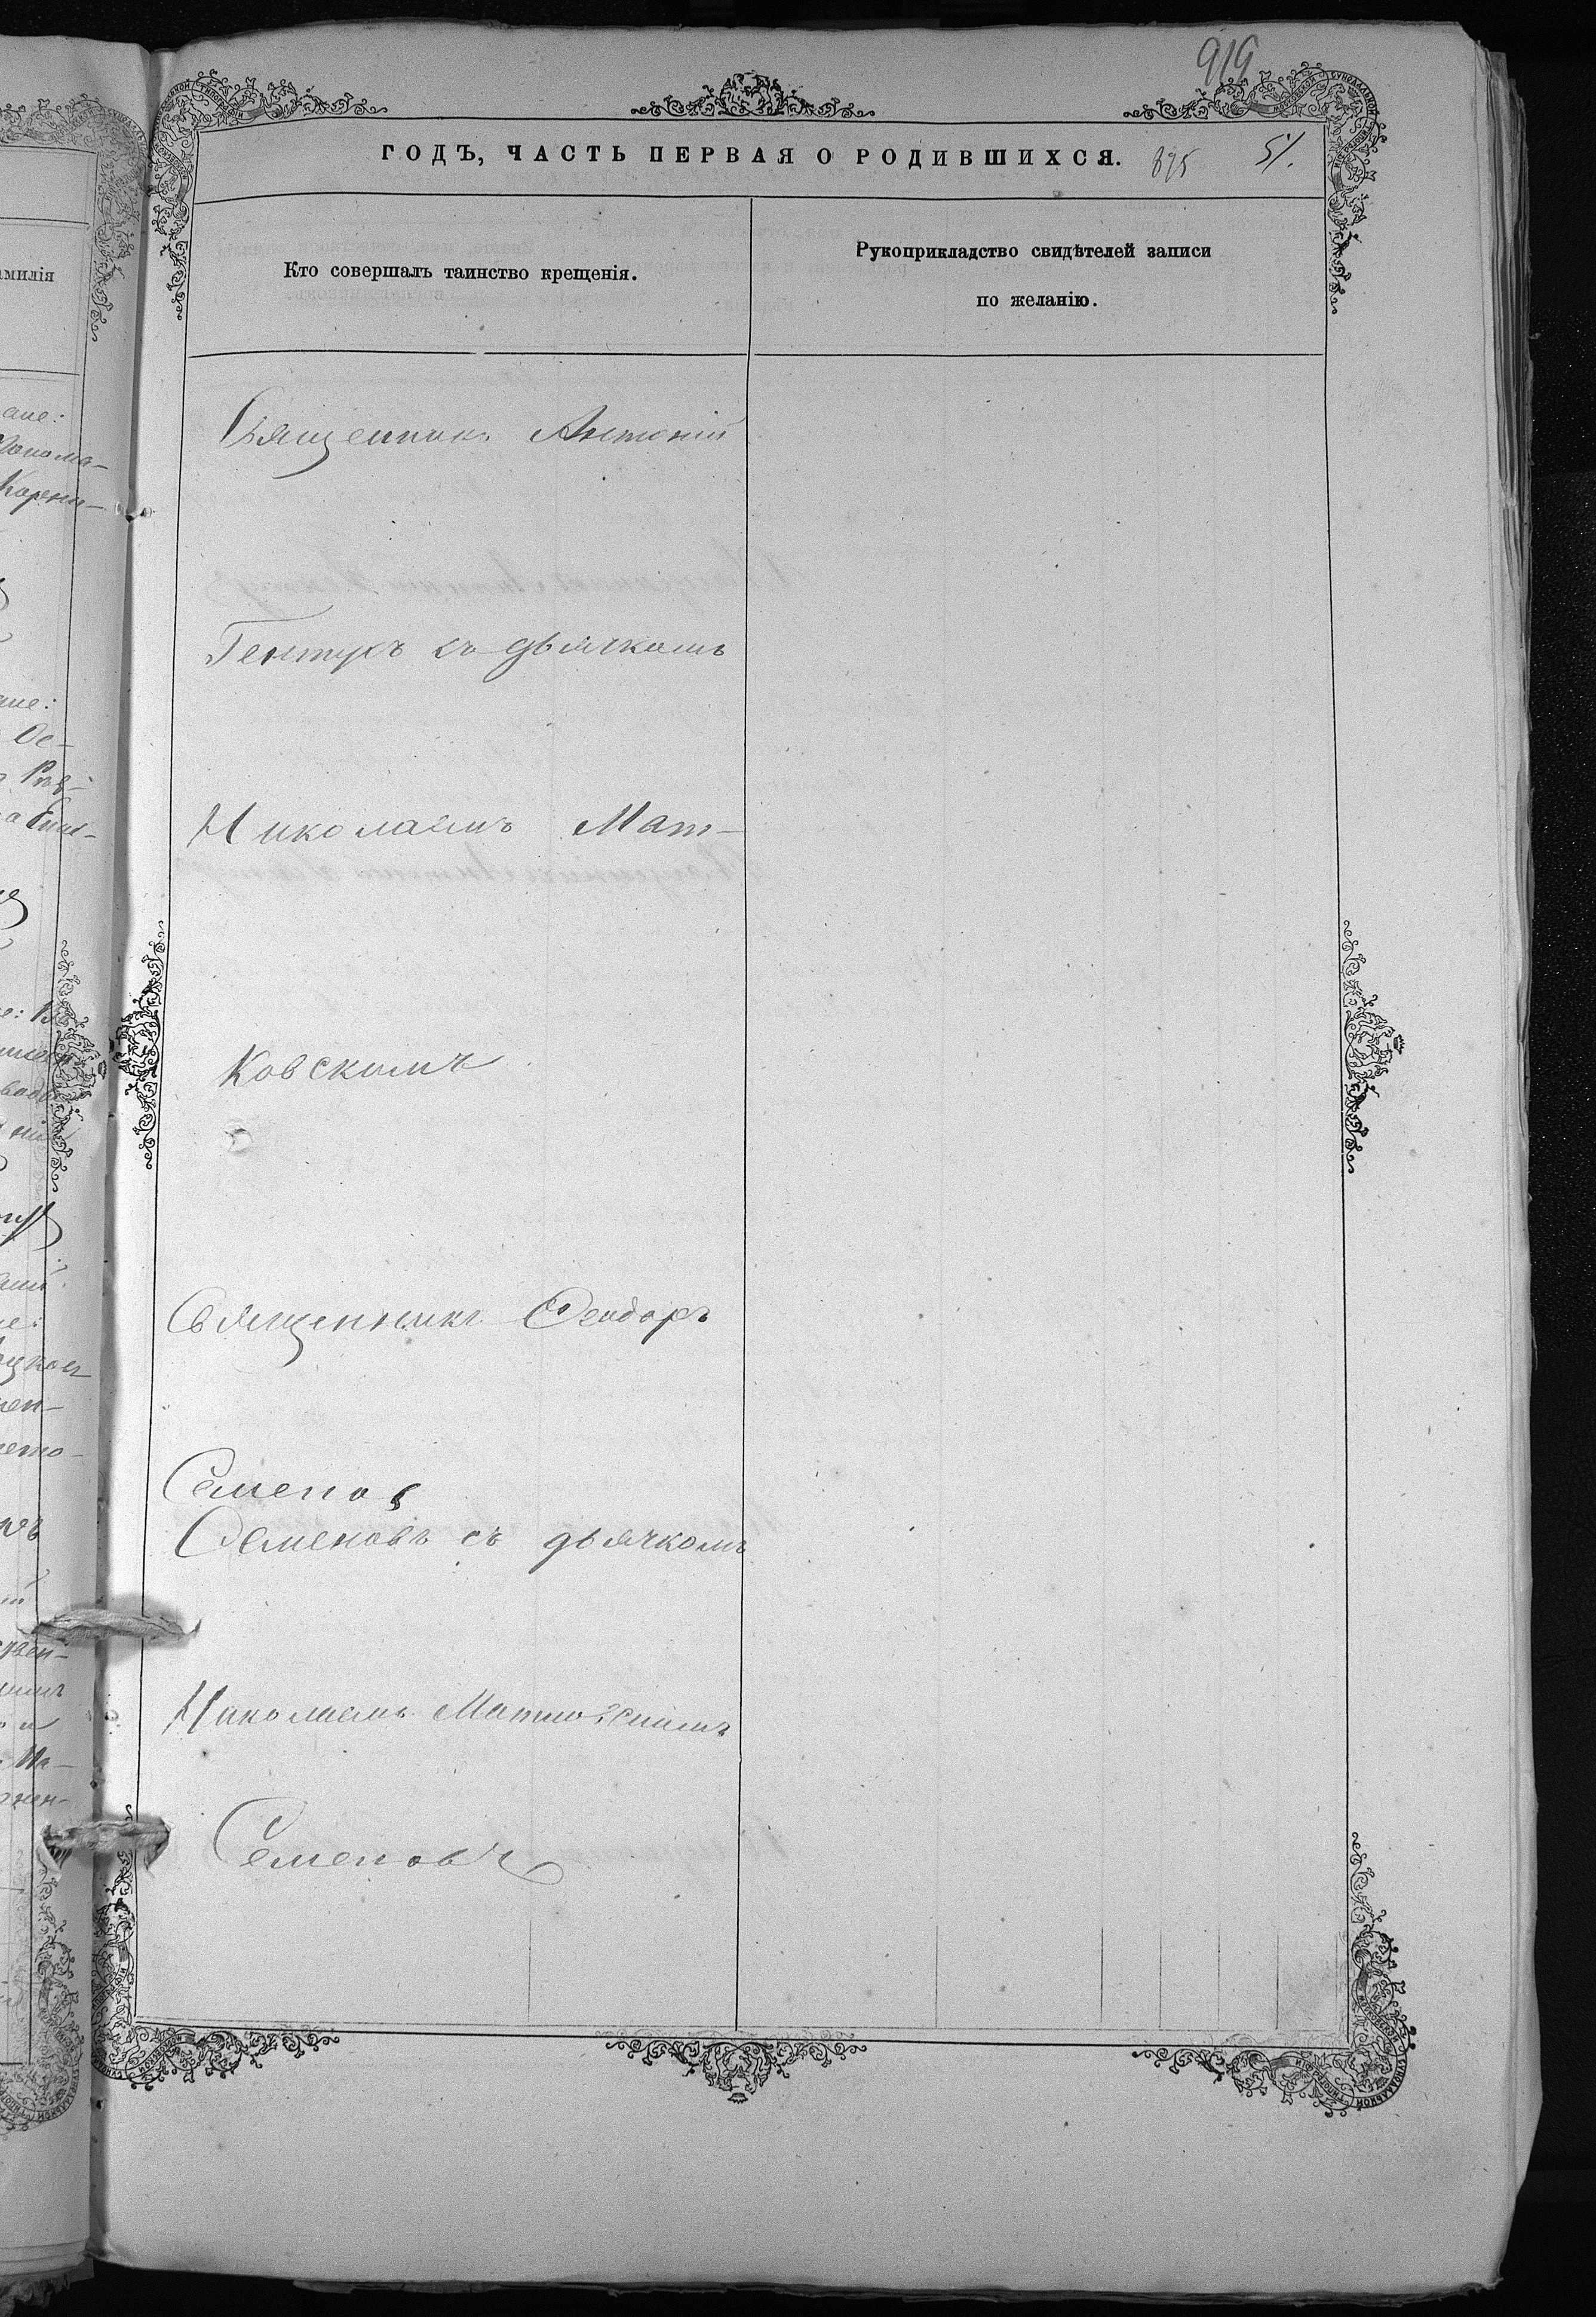 919
ГОДЪ, ЧАСТЬ ПЕРВАЯ О РОДИВШИХСЯ. 895 51.
Кто совершалъ таинство крещенія.
Рукоприкладство свидѣтелей записи
по желанію.
Священникъ Антоній
Гентухъ съ дьячкомъ
Николаемъ Мат-
ковскимъ
Священникъ Ѳеодоръ
Семенов
Семеновъ съ дьячкомъ
Николаемъ Матковскимъ
Семеновъ